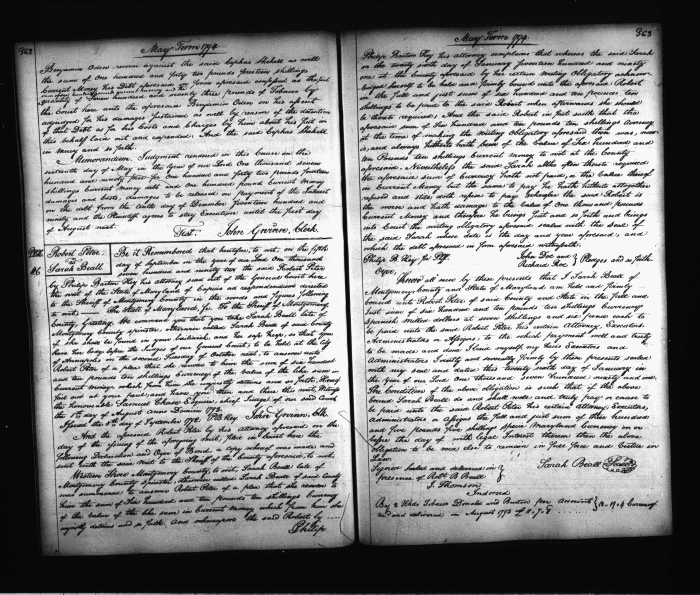 362
May Term 1794
Benjamin Oden recover against the said Cephas Shekell as well
the sum of One hundred and forty two pounds fourteen shillings
current Money his Debt aforesaid
quantity of Seven hundred and ninety three pounds of Tobacco by
the Court here unto the aforesaid Benjamin Oden on his assent
adjudged for his damages sustained as well by reason of the detention
of that Debt as for his costs and charges by him about his suit in
this behalf laid out and expended. And the said Cephas Shekell
in mercy and so forth.
Memorandum. Judgment rendered in this Cause on the
sixteenth day of May in the Year of our Lord One thousand seven
hundred and ninety four for One hundred and forty two pounds fourteen
shillings Current Money debt and One hundred pounds Current Money
damages and Costs, damages to be released on payment of the Interest
on the debt from the tenth day of December Seventeen hundred and
ninety and the Plaintiff agrees to stay Execution until the first day
of August next.
Test. John Gwinn, Clerk.
Robert Peter
vs
Sarah Beall
Be it Remembered that heretofore, to wit, on the fifth
day of September in the Year of our Lord One thousand
seven hundred and ninety two the said Robert Peter
by Philip Barton Key his attorney sued out of the General Court here
the writ of the State of Maryland of Capias ad respondendum directed
to the Sheriff of Montgomery County in the words and figures following
to wit, The State of Maryland, sc. To the Sheriff of Montgomery
County, Greeting. We command you that you take Sarah Beall late of
Montgomery County spinster, otherwise called Sarah Beall of said County
if she shall be found in your bailiwick, and her safe keep, so that you
have her body before the Judges of our General Court, to be held at the City
of Annapolis on the second Tuesday of October next to answer unto
Robert Peter of a plea that she render to him the sum of six hundred
and ten pounds ten shillings Currency of the value of the like sum in
current money, which from him she unjustly detains and so forth, Hereof
fail not at your peril, and have you then and there this writ, Witness
the Honorable Samuel Chase Esquire chief Judge of our said Court
the day of August Anno Domini 1792.
Issued the 5th day of September 1792. PB Key John Gwinn, Clk
And the aforesaid Robert Peter by his attorney aforesaid on the
day of the issuing of the aforegoing writ, filed in Court here the
following Declaration and Copy of Bond, a copy whereof was made and
sent with the said writ to the Sheriff of the County aforesaid, to wit,
Western Shore Montgomery County, to wit, Sarah Beall late of
Montgomery County Spinster, otherwise called Sarah Beall of said County
was summoned to answer Robert Peter of a plea that she render to
him the sum of Six hundred and ten pounds ten shillings Currency
of the value of the like sum in Current Money which from him she
unjustly detains and so forth. And whereupon the said Robert by
Philip
363
May Term 1794
Philip Barton Key his attorney complains that whereas the said Sarah
on the twenty ninth day of January seventeen hundred and ninety
one at the County aforesaid by her certain writing Obligatory acknow
ledged herself to be held and firmly bound unto the aforesaid Robert
in the full and just sum of six hundred and ten pounds ten
shillings to be paid to the said Robert when afterwards she should
be thereto required, And the said Robert in fact saith that the
aforesaid sum of six hundred and ten pounds ten shillings Currency
at the time of making the writing Obligatory aforesaid there was, now
is, and always hitherto hath been of the value of Six hundred and
ten Pounds ten shillings current money to wit at the County
aforesaid, Nevertheless the said Sarah altho often thereto required
the aforesaid sum of Currency hath not paid, or the value thereof
in Current Money but the same to pay he hath hitherto altogether
refused and still doth refuse to pay whereupon the said Robert is
the worse and hath damage to the value of One thousand pounds
Current Money and therefore he brings suit and so forth and brings
into Court the writing obligatory aforesaid sealed with the seal of
the said Sarah whose date is the day and year aforesaid, and
which the debt aforesaid in form aforesaid witnesseth.
Ph. B. Key for Plff
John Doe and
Richard Roe Pledges and so forth.
Know all men by these presents that I Sarah Beall of
Montgomery County and State of Maryland am held and firmly
bound unto Robert Peter of said County and State in the full and
just sum of six hundred and ten pounds ten shillings Currency
Spanish milled dollars at seven shillings and six pence each to
be paid unto the said Robert Peter his certain Attorney, Executors
Administrators or Assigns. To the which payment well and truly
to be made and done I bind myself my Heirs Executors and
Administrators jointly and severally firmly by these presents sealed
with my seal and dated this twenty ninth day of January in
the year of our Lord One thousand and seven hundred ninety and one.
The Condition of the above obligation is such that if the above
bound Sarah Beall do and shall well and truly pay or cause to
be paid unto the said Robert Peter his certain Attorney, Executors,
administrators or assigns the full and just sum of three hundred
and five pounds five shillings specie Maryland Currency on or
before the day of with legal Interest thereon then the above
obligation to be void else to remain in full force and virtue in
Law.
Signed Sealed and delivered in
presence of Robt B Beall
Thomson
Sarah Beall (Seal)
Indorsed
By 2 Hhds Tobacco
and delivered in August 1793
Currency